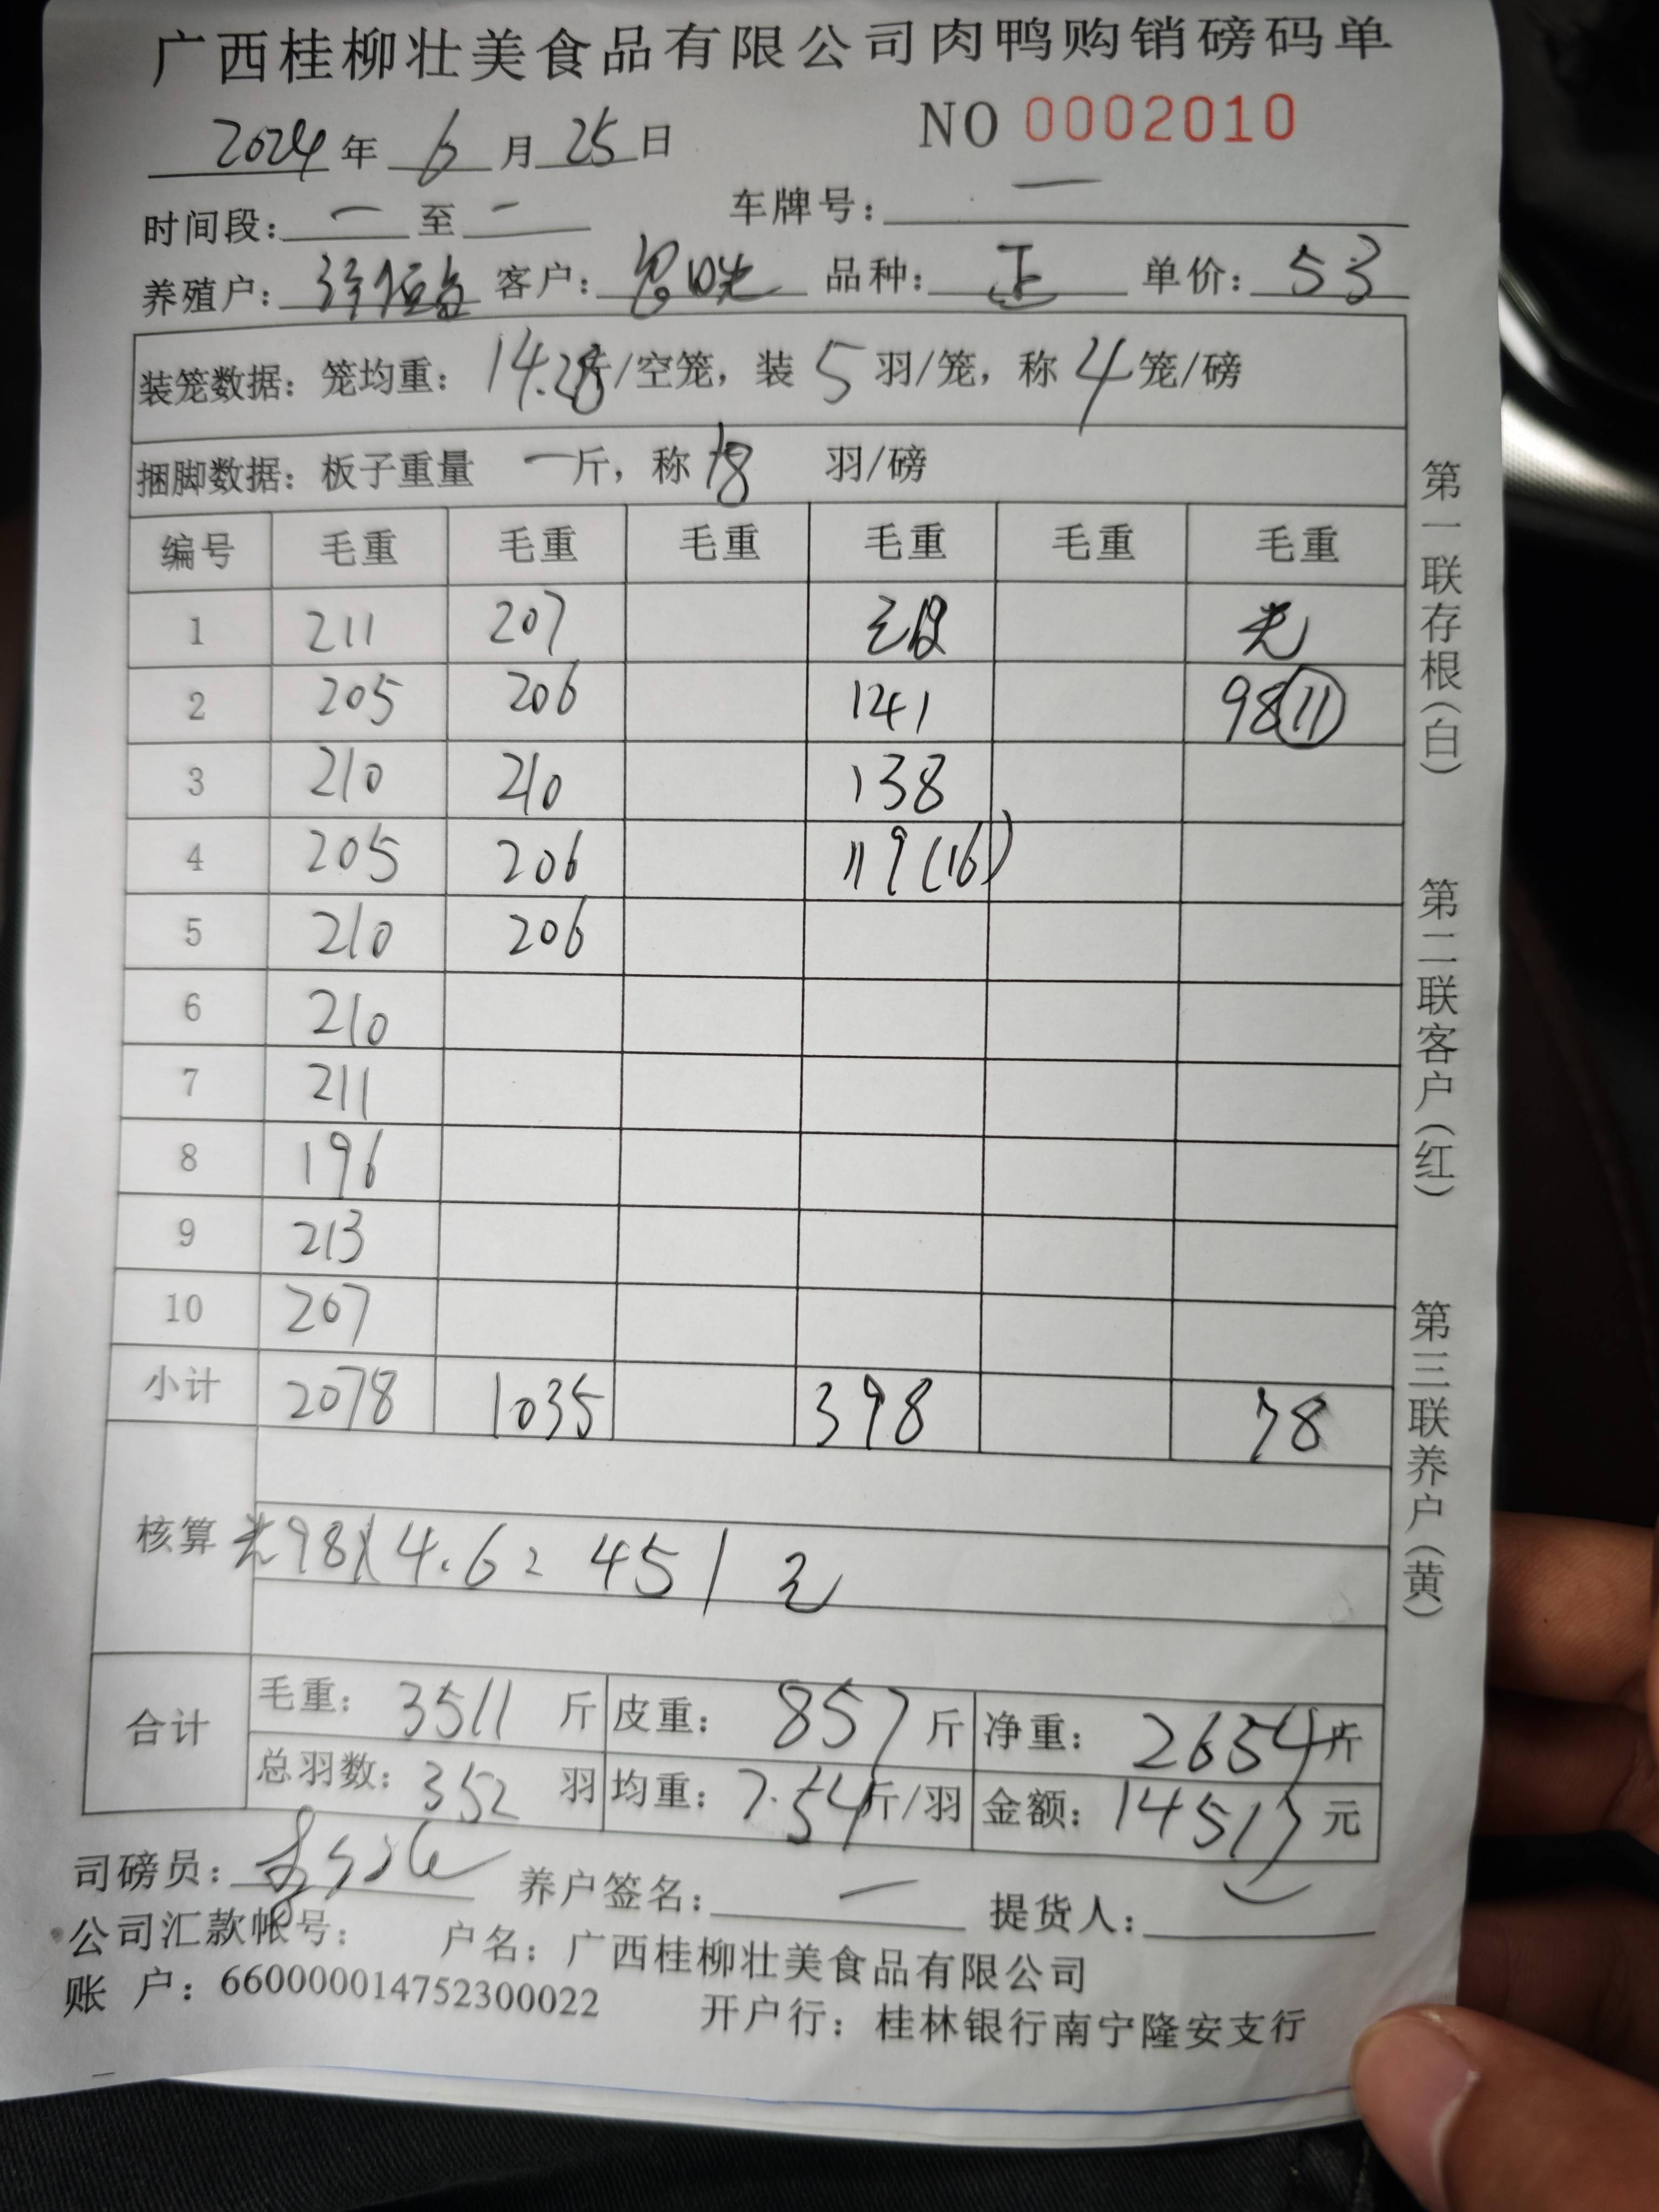 广西桂柳壮美食品有限公司肉鸭购销磅码单
NO 0002010
2024 年 6 月 25 日
时间段: 一 至 一 车牌号: 一
养殖户: 客户: 品种: 正 单价: 53
装笼数据: 笼均重: 14.28斤/空笼, 装 5 羽/笼, 称 4 笼/磅
捆脚数据: 板子重量 一斤, 称 18 羽/磅
编号 毛重 毛重 毛重 毛重 毛重 毛重
1 211 207 光
2 205 206 141 98(11)
3 210 210 138
4 205 206 119(16)
5 210 206
6 210
7 211
8 196
9 213
10 207
小计 2078 1035 398 98
核算 光98×4.6=451元
合计 毛重: 3511 斤 皮重: 857 斤 净重: 2654斤
总羽数: 352 羽 均重: 7.54斤/羽 金额: 14517 元
司磅员: 养户签名: 一 提货人:
公司汇款帐号: 户名: 广西桂柳壮美食品有限公司
账 户: 660000014752300022 开户行: 桂林银行南宁隆安支行
第一联存根(白) 第二联客户(红) 第三联养户(黄)